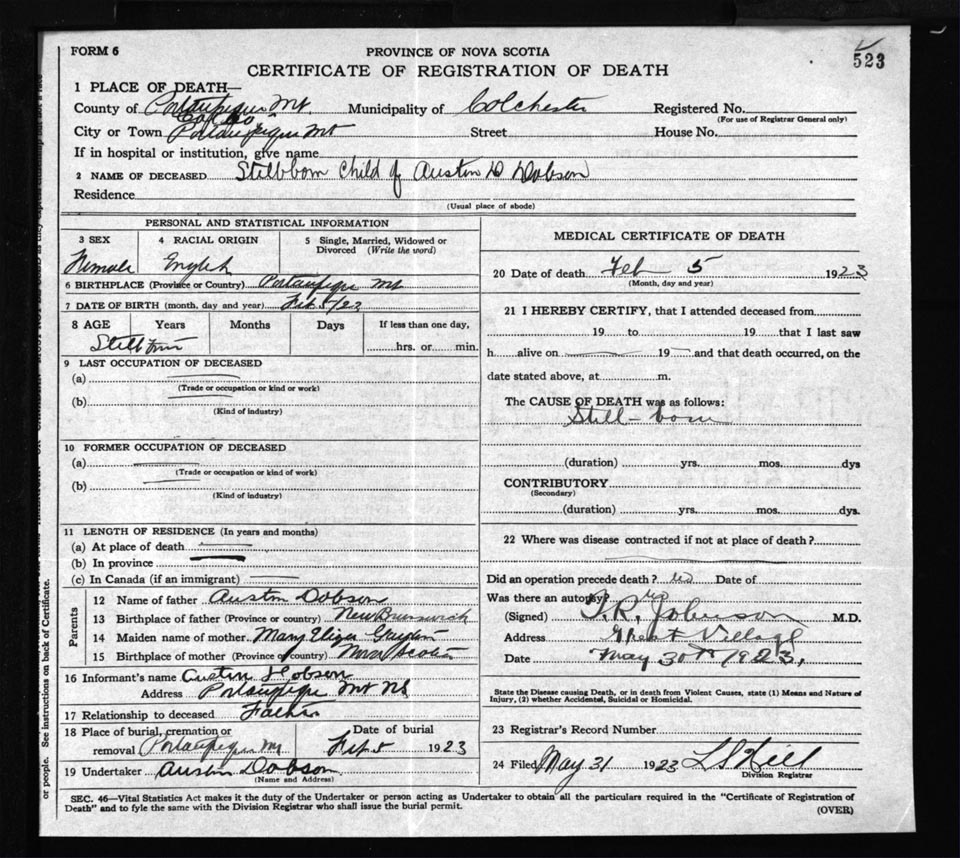 FORM 6
PROVINCE OF NOVA SCOTIA
523
CERTIFICATE OF REGISTRATION OF DEATH
1 PLACE OF DEATH—
County of Portaupique Mt. Municipality of Colchester Registered No.
Col Co
(For use of Registrar General only)
City or Town Portaupique Mt Street House No.
If in hospital or institution, give name
2 NAME OF DECEASED Stillborn child of Austin D Dobson
Residence
(Usual place of abode)
PERSONAL AND STATISTICAL INFORMATION
3 SEX 4 RACIAL ORIGIN 5 Single, Married, Widowed or
Divorced (Write the word)
Female English
6 BIRTHPLACE (Province or Country) Portaupique Mt
7 DATE OF BIRTH (month, day and year) Feb 5/23
8 AGE Years Months Days If less than one day,
Still born
hrs. or min.
9 LAST OCCUPATION OF DECEASED
(a)
(Trade or occupation or kind or work)
(b)
(Kind of industry)
10 FORMER OCCUPATION OF DECEASED
(a)
(Trade or occupation or kind of work)
(b)
(Kind of industry)
11 LENGTH OF RESIDENCE (In years and months)
(a) At place of death
(b) In province
(c) In Canada (if an immigrant)
Parents
12 Name of father Austin Dobson
13 Birthplace of father (Province or country) New Brunswick
14 Maiden name of mother Mary
15 Birthplace of mother (Province or country) Nova Scotia
16 Informant's name Austin Dobson
Address Portaupique Mt NS
17 Relationship to deceased Father
18 Place of burial, cremation or Date of burial
removal Portaupique Mt Feb 5 1923
19 Undertaker Austin Dobson
(Name and Address)
MEDICAL CERTIFICATE OF DEATH
20 Date of death Feb 5 1923
(Month, day and year)
21 I HEREBY CERTIFY, that I attended deceased from
19 to 19 that I last saw
h alive on 19 and that death occurred, on the
date stated above, at m.
The CAUSE OF DEATH was as follows:
Still-born
(duration) yrs. mos. dys
CONTRIBUTORY
(Secondary)
(duration) yrs. mos. dys.
22 Where was disease contracted if not at place of death?
Did an operation precede death? no Date of
Was there an autopsy? no
(Signed) T.R. Johnson M.D.
Address Great Village
Date May 30th 1923.
State the Disease causing Death, or in death from Violent Causes, state (1) Means and Nature of
Injury, (2) whether Accidental, Suicidal or Homicidal.
23 Registrar's Record Number
24 Filed May 31 1923 L S Hill
Division Registrar
SEC. 46—Vital Statistics Act makes it the duty of the Undertaker or person acting as Undertaker to obtain all the particulars required in the "Certificate of Registration of
Death" and to fyle the same with the Division Registrar who shall issue the burial permit.
(OVER)
or people. See instructions on back of Certificate.